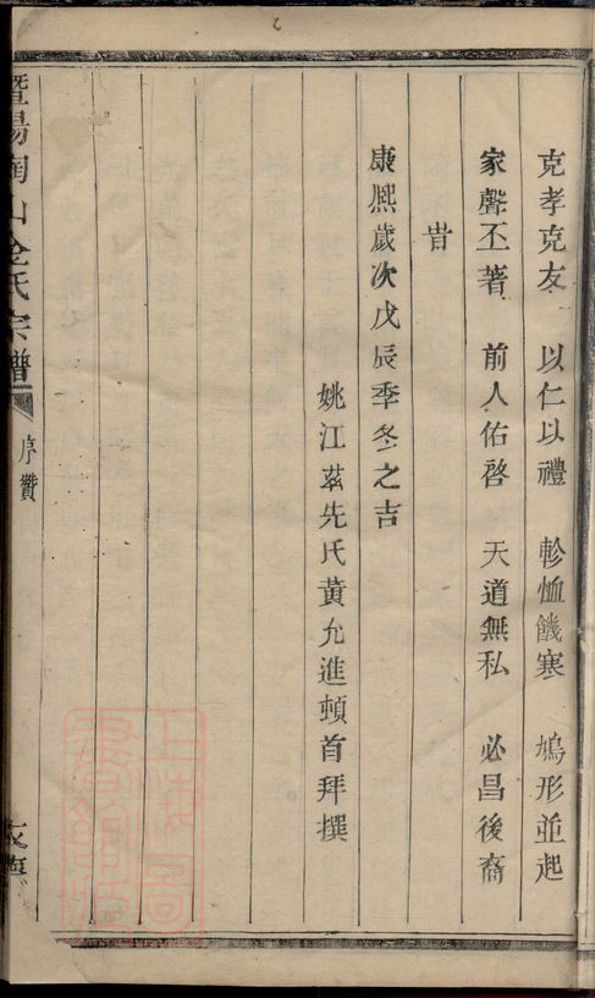 克孝克友 以仁以禮 軫恤饑寒 鳩形並起
家聲丕著 前人佑啓 天道無私 必昌後裔
旹
康熙歲次戊辰季冬之吉
姚江茲先氏黃允進頓首拜撰
暨陽陶山金氏宗譜 序贊
上海圖書館藏